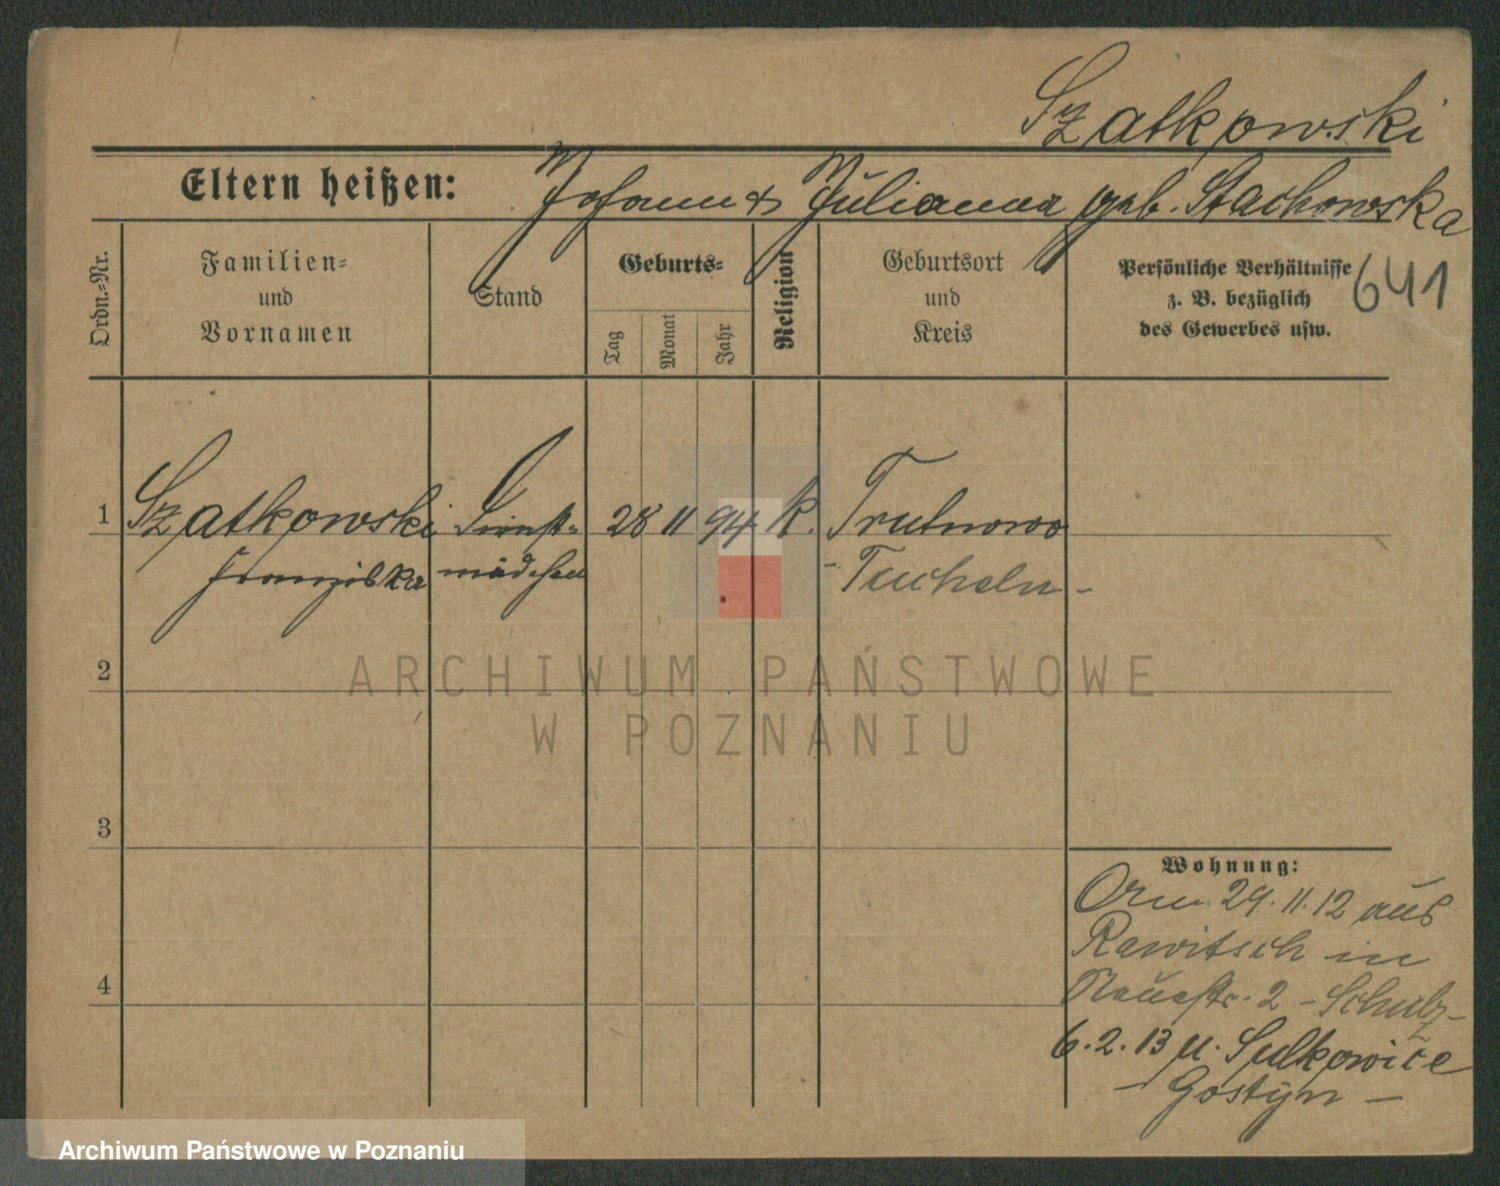 Szatkowski
Eltern heißen: Johann & Julianna geb. Stachowska
641
Ordn.-Nr.
Familien-
und
Vornamen
Stand
Geburts-
Tag
Monat
Jahr
Religion
Geburtsort
und
Kreis
Persönliche Verhältnisse
z. B. bezüglich
des Gewerbes usw.
1 Szatkowski Dienst- 28 11 94 K. Trutnowo
Franziska mädchen - Tucheln -
2
3
4
Wohnung:
29.11.12 aus
Rawitsch in
Neuestr. 2 - Schulz -
6.2.13 n. Sulkowice
- Gostyn -
ARCHIWUM PAŃSTWOWE
W POZNANIU
Archiwum Państwowe w Poznaniu